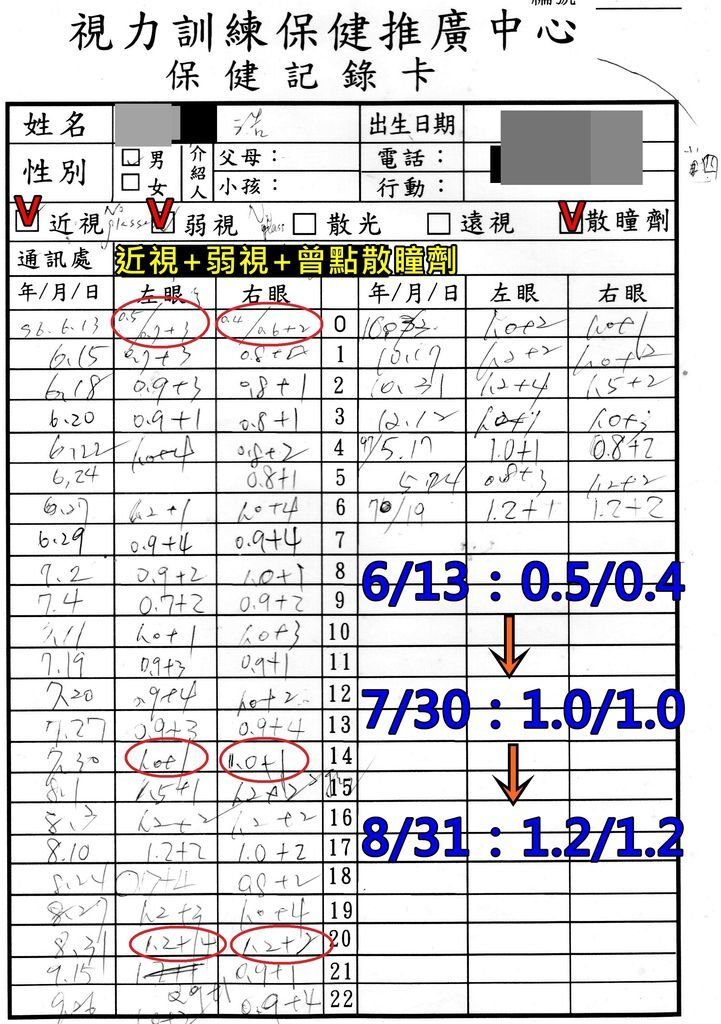 編號
視力訓練保健推廣中心
保健記錄卡
姓名 浩 出生日期
性別 男 女 介紹人 父母： 小孩： 電話： 行動：
V 近視 V 弱視 散光 遠視 V 散瞳劑
通訊處 近視+弱視+曾點散瞳劑
年/月/日 左眼 右眼 年/月/日 左眼 右眼
96.6.13 0.5/0.7+3 0.4/0.6+2 0 1.0+2 1.0+1
6.15 0.7+3 1 10.17 1.2+2
6.18 0.9+3 0.8+1 2 10.31 1.2+4 1.5+2
6.20 0.9+1 0.8+1 3 12.12
6.22 1.0+4 0.8+2 4 97/5.17 1.0+1 0.8+2
6.24 0.8+1 5 0.8+3 1.2+2
6.27 1.2+1 1.0+4 6 1.2+1 1.2+2
6.29 0.9+4 0.9+4 7
7.2 0.9+2 1.0+1 8 6/13：0.5/0.4
7.4 0.7+2 0.9+2 9
7.11 1.0+1 1.0+3 10
7.19 0.9+3 0.9+1 11
7.20 0.9+4 1.0+2 12 7/30：1.0/1.0
7.27 0.9+3 0.9+4 13
7.30 1.0+1 1.0+1 14
8.1 1.5+1 15
8.3 1.2+2 1.2+2 16 8/31：1.2/1.2
8.10 1.2+2 1.0+2 17
8.24 0.8+2 18
8.27 1.2+3 1.0+4 19
8.31 1.2+4 1.2+2 20
9.15 0.9+1 21
9.26 0.9+1 0.9+4 22